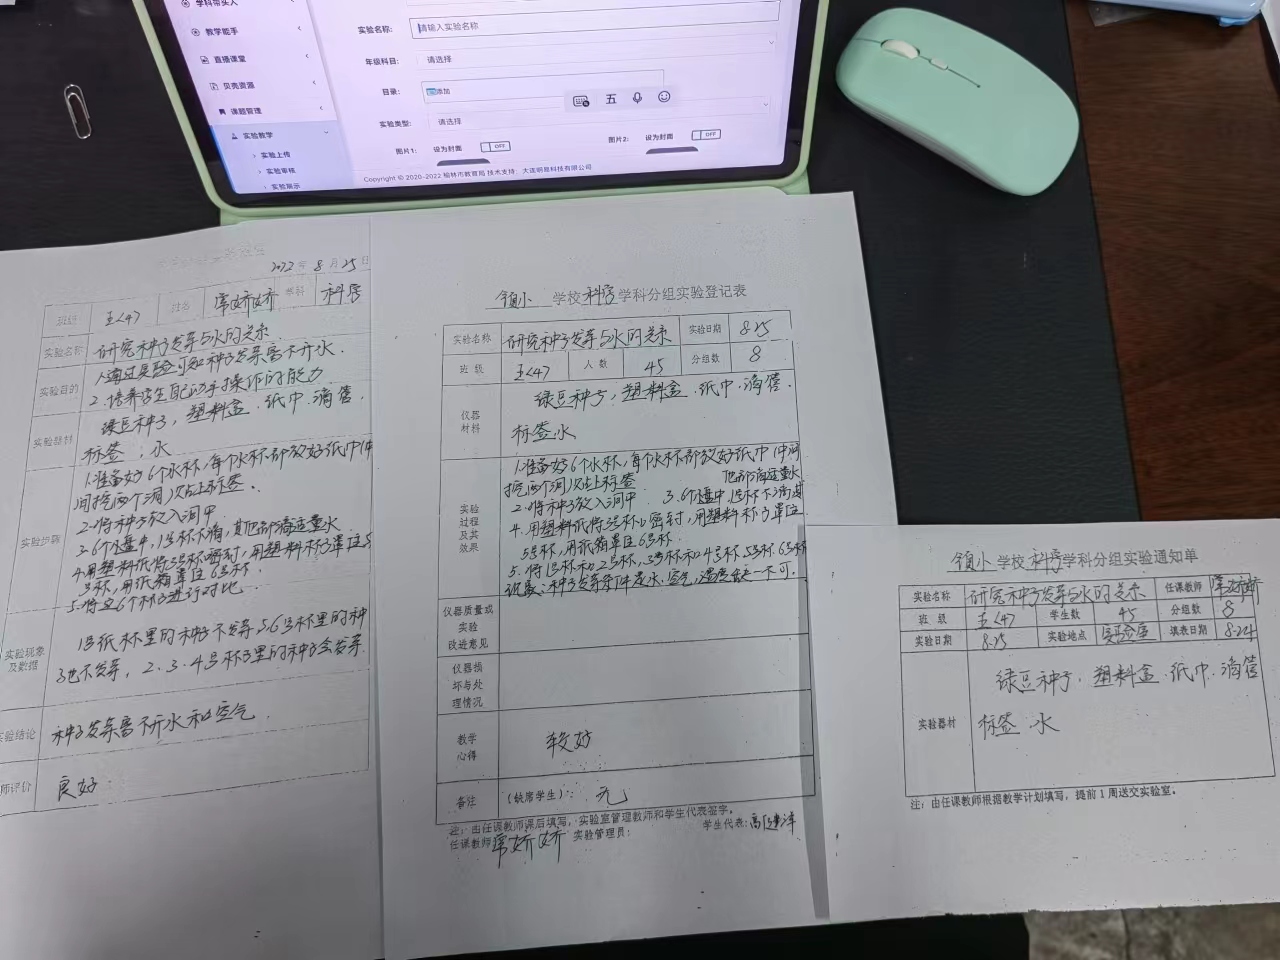 学科带头人
教学能手
直播课堂
贝壳资源
课题管理
实验教学
实验上传
实验审核
实验展示
实验名称: 请输入实验名称
年级科目: 请选择
目录: 添加
五
实验类型: 请选择
图片1: 设为封面 OFF
图片2: 设为封面 OFF
Copyright © 2020-2022 榆林市教育局 技术支持: 大连明是科技有限公司
2022年 8月 25日
班级 五<4> 姓名 常娇娇 学科 科学
实验名称 研究种子发芽与水的关系
实验目的 1.通过实验可知种子发芽离不开水.
2.培养学生动手操作的能力
实验器材 绿豆种子, 塑料盒.纸巾.滴管
标签.水
实验步骤 1.准备好6个水杯,每个水杯都放好纸巾中
间挖两个洞贴上标签。
2.将种子放入洞中
3.6个水盘中,1号杯不滴,其他都滴适量水
4.用塑料纸将5号杯密封,用塑料杯子罩住5
号杯,用纸箱罩住6号杯
5.将这6个杯子进行对比.
实验现象及数据 1号纸杯里的种子不发芽5.6号杯里的种
子也不发芽, 2.3.4号杯子里的种子会发芽.
实验结论 种子发芽离不开水和空气.
师评价 良好
镇小 学校 科学 学科分组实验登记表
实验名称 研究种子发芽与水的关系 实验日期 8.25
班 级 五<4> 人 数 45 分组数 8
仪器材料 绿豆种子, 塑料盒.纸巾.滴管.
标签.水
实验过程及其效果 1.准备好6个水杯,每个水杯都放好纸巾中间
挖两个洞贴上标签 他都滴适量水
2.将种子放入洞中 3.6个水盘中,1号杯不滴其
4.用塑料纸将5号杯口密封,用塑料杯子罩住
5号杯,用纸箱罩住6号杯.
5.将1号杯和2号杯,3号杯和4号杯.5号杯.6号杯
现象:种子发芽条件是水.空气,温度缺一不可.
仪器质量或实验改进意见
仪器损坏与处理情况
教学心得 较好
备注 (缺席学生): 无
注: 由任课教师课后填写, 实验室管理教师和学生代表签字。
任课教师 常娇娇 实验管理员: 学生代表:
镇小 学校 科学 学科分组实验通知单
实验名称 研究种子发芽与水的关系 任课教师 常娇娇
班 级 五<4> 学生数 45 分组数 8
实验日期 8.25 实验地点 实验室 填表日期 8.24
实验器材 绿豆种子, 塑料盒.纸巾.滴管
标签 水
注: 由任课教师根据教学计划填写, 提前1周送交实验室。